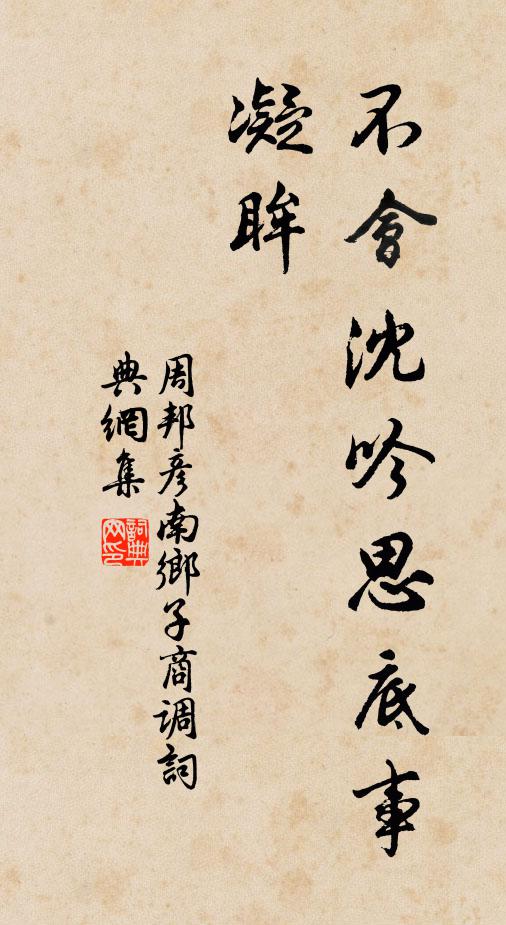 不會沈吟思底事
凝眸
周邦彥南鄉子商调詞
典網集
詞典
网印